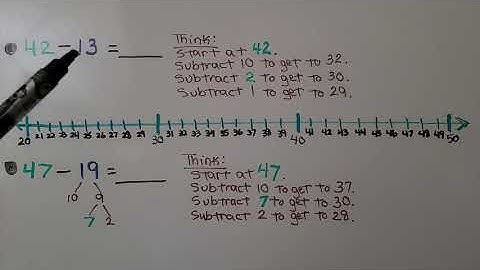 42 - 13 = ____
Think:
Start at 42.
Subtract 10 to get to 32.
Subtract 2 to get to 30.
Subtract 1 to get to 29.
20 21 22 23 24 25 26 27 28 29 30 31 32 33 34 35 36 37 38 39 40 41 42 43 44 45 46 47 48 49 50
47 - 19 = ____
10 9
7 2
Think:
Start at 47.
Subtract 10 to get to 37.
Subtract 7 to get to 30.
Subtract 2 to get to 28.